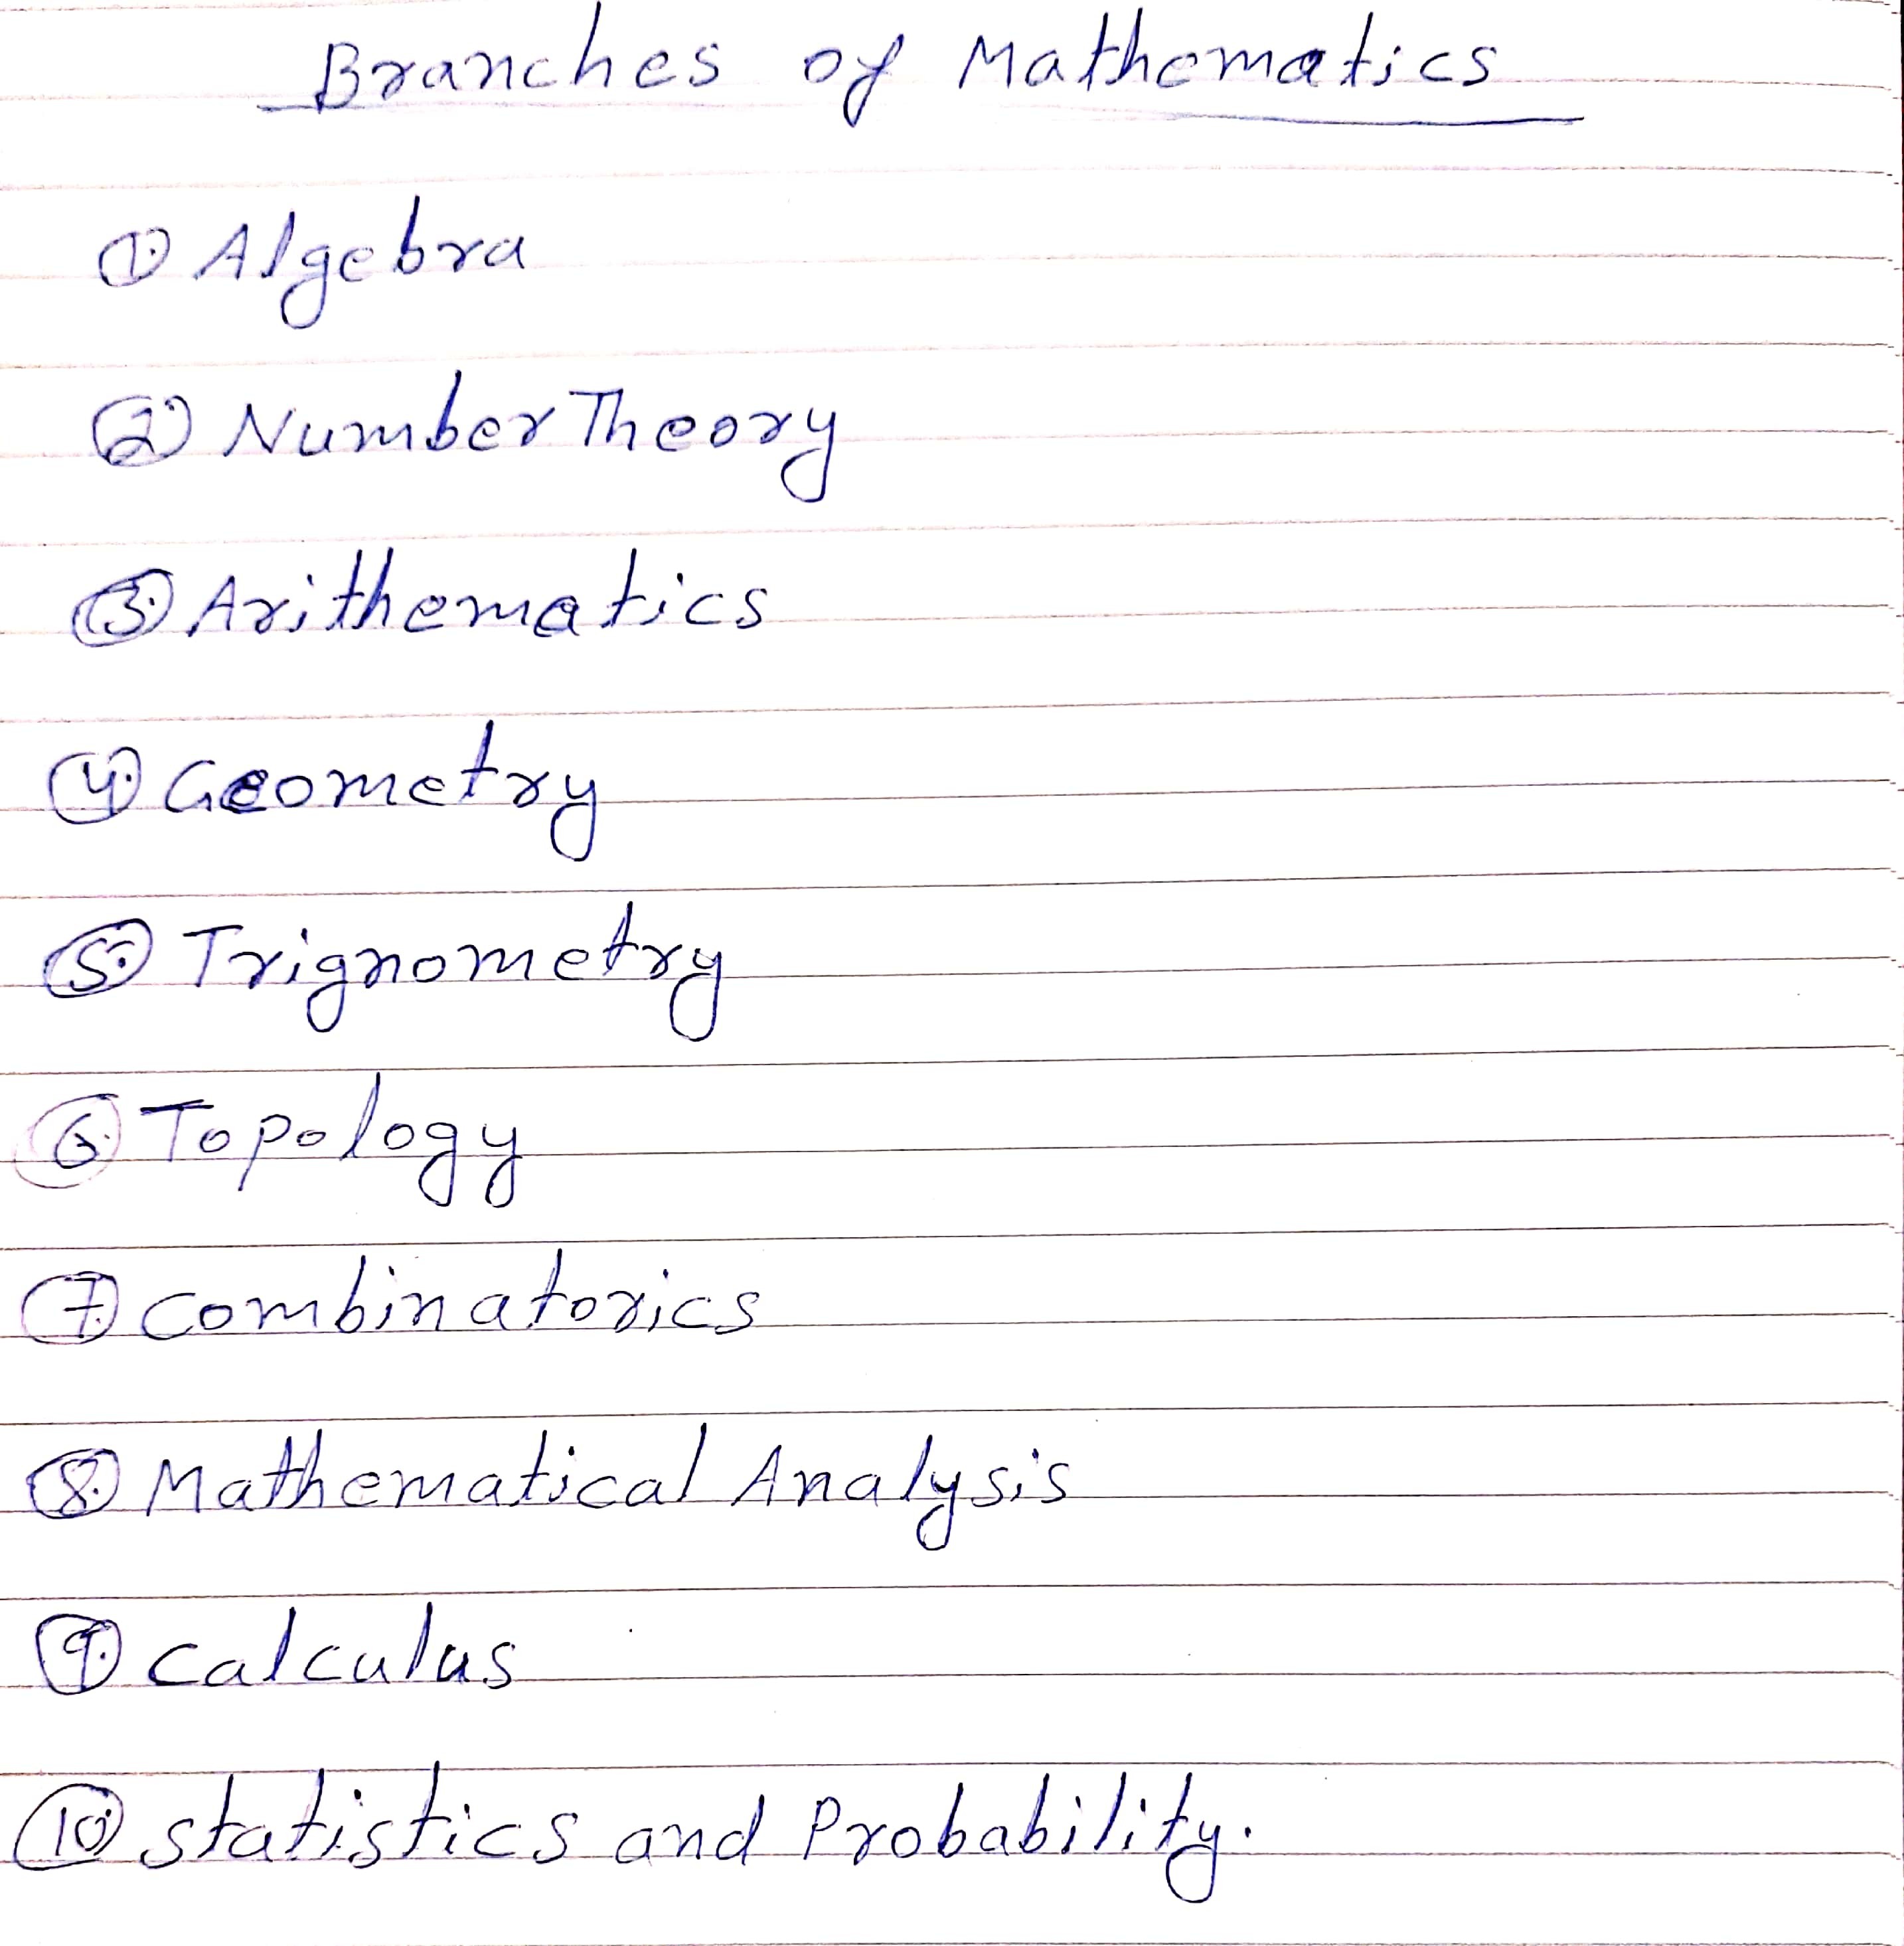 Branches of Mathematics
1. Algebra
2. Number Theory
3. Arithematics
4. Geometry
5. Trignometry
6. Topology
7. Combinatorics
8. Mathematical Analysis
9. Calculus
10. Statistics and Probability.